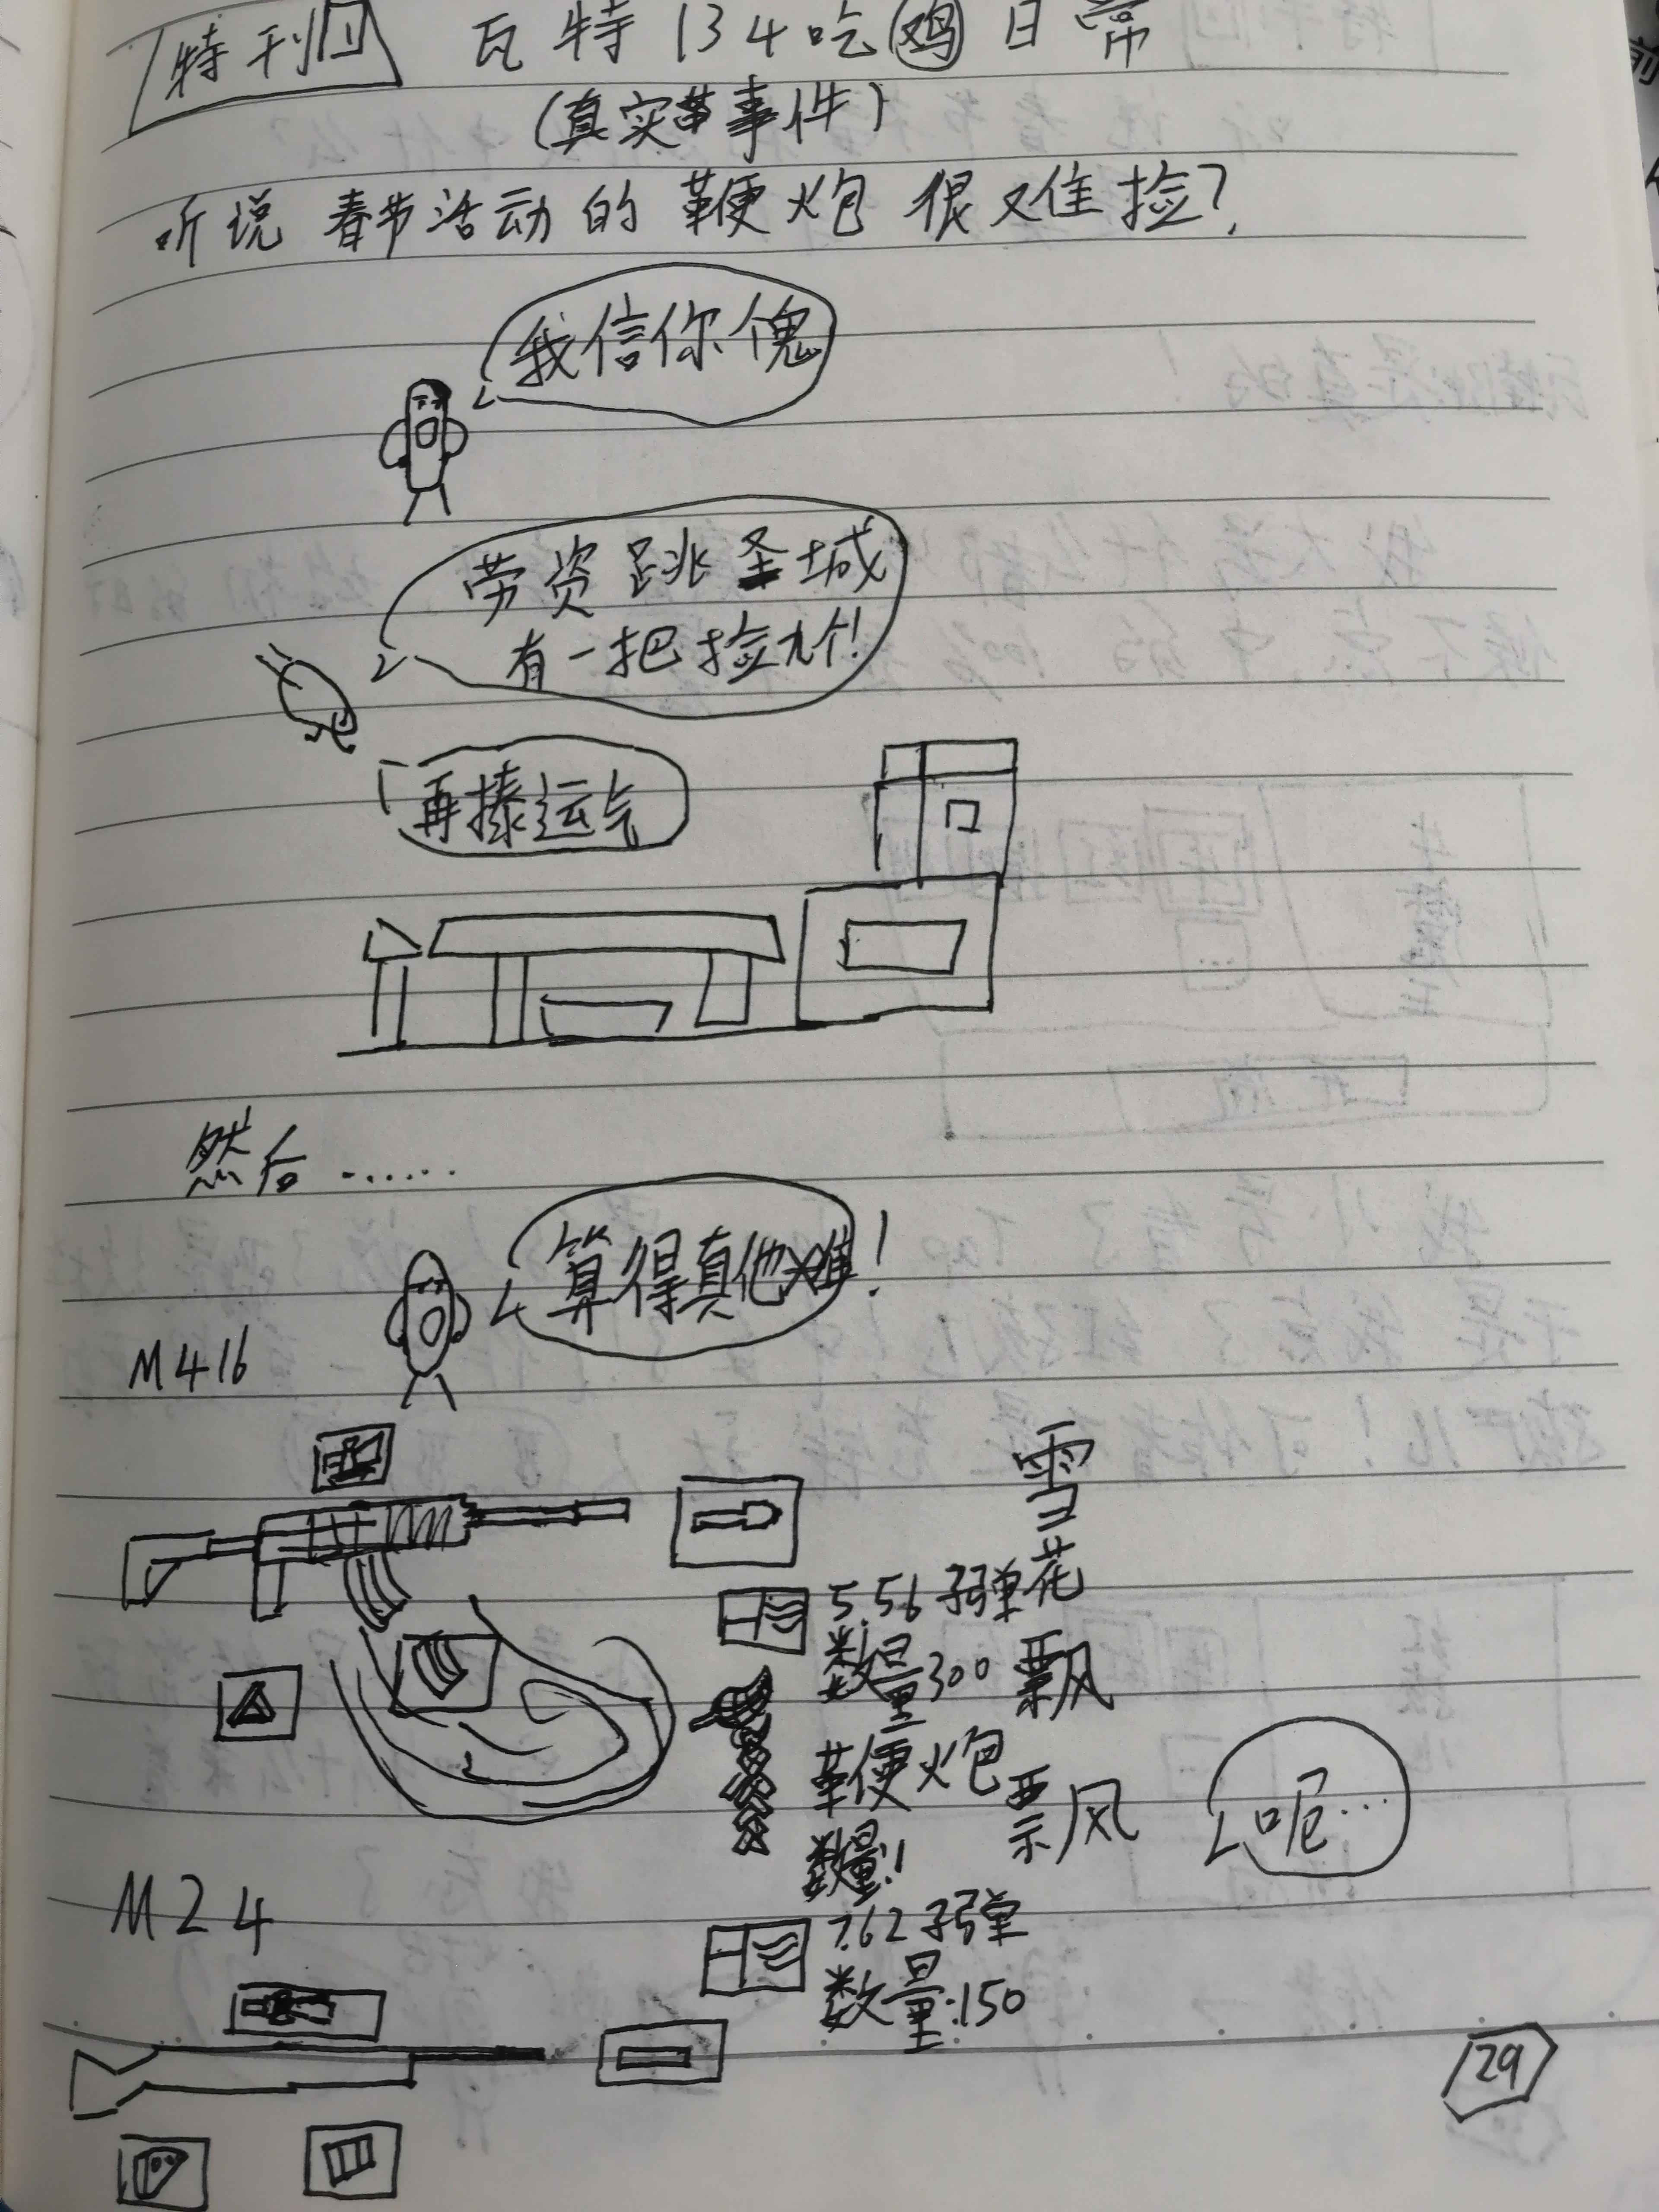 特刊1 瓦特134吃鸡日常
(真实事件)
听说春节活动的鞭炮很难捡?
我信你个鬼
劳资跳圣城
有一把捡九个!
再捧运气
然后……
算得真他难!
M416
雪花飘飘
5.56子弹
数量300
鞭炮
数量1
呃…
M24
7.62子弹
数量:150
29